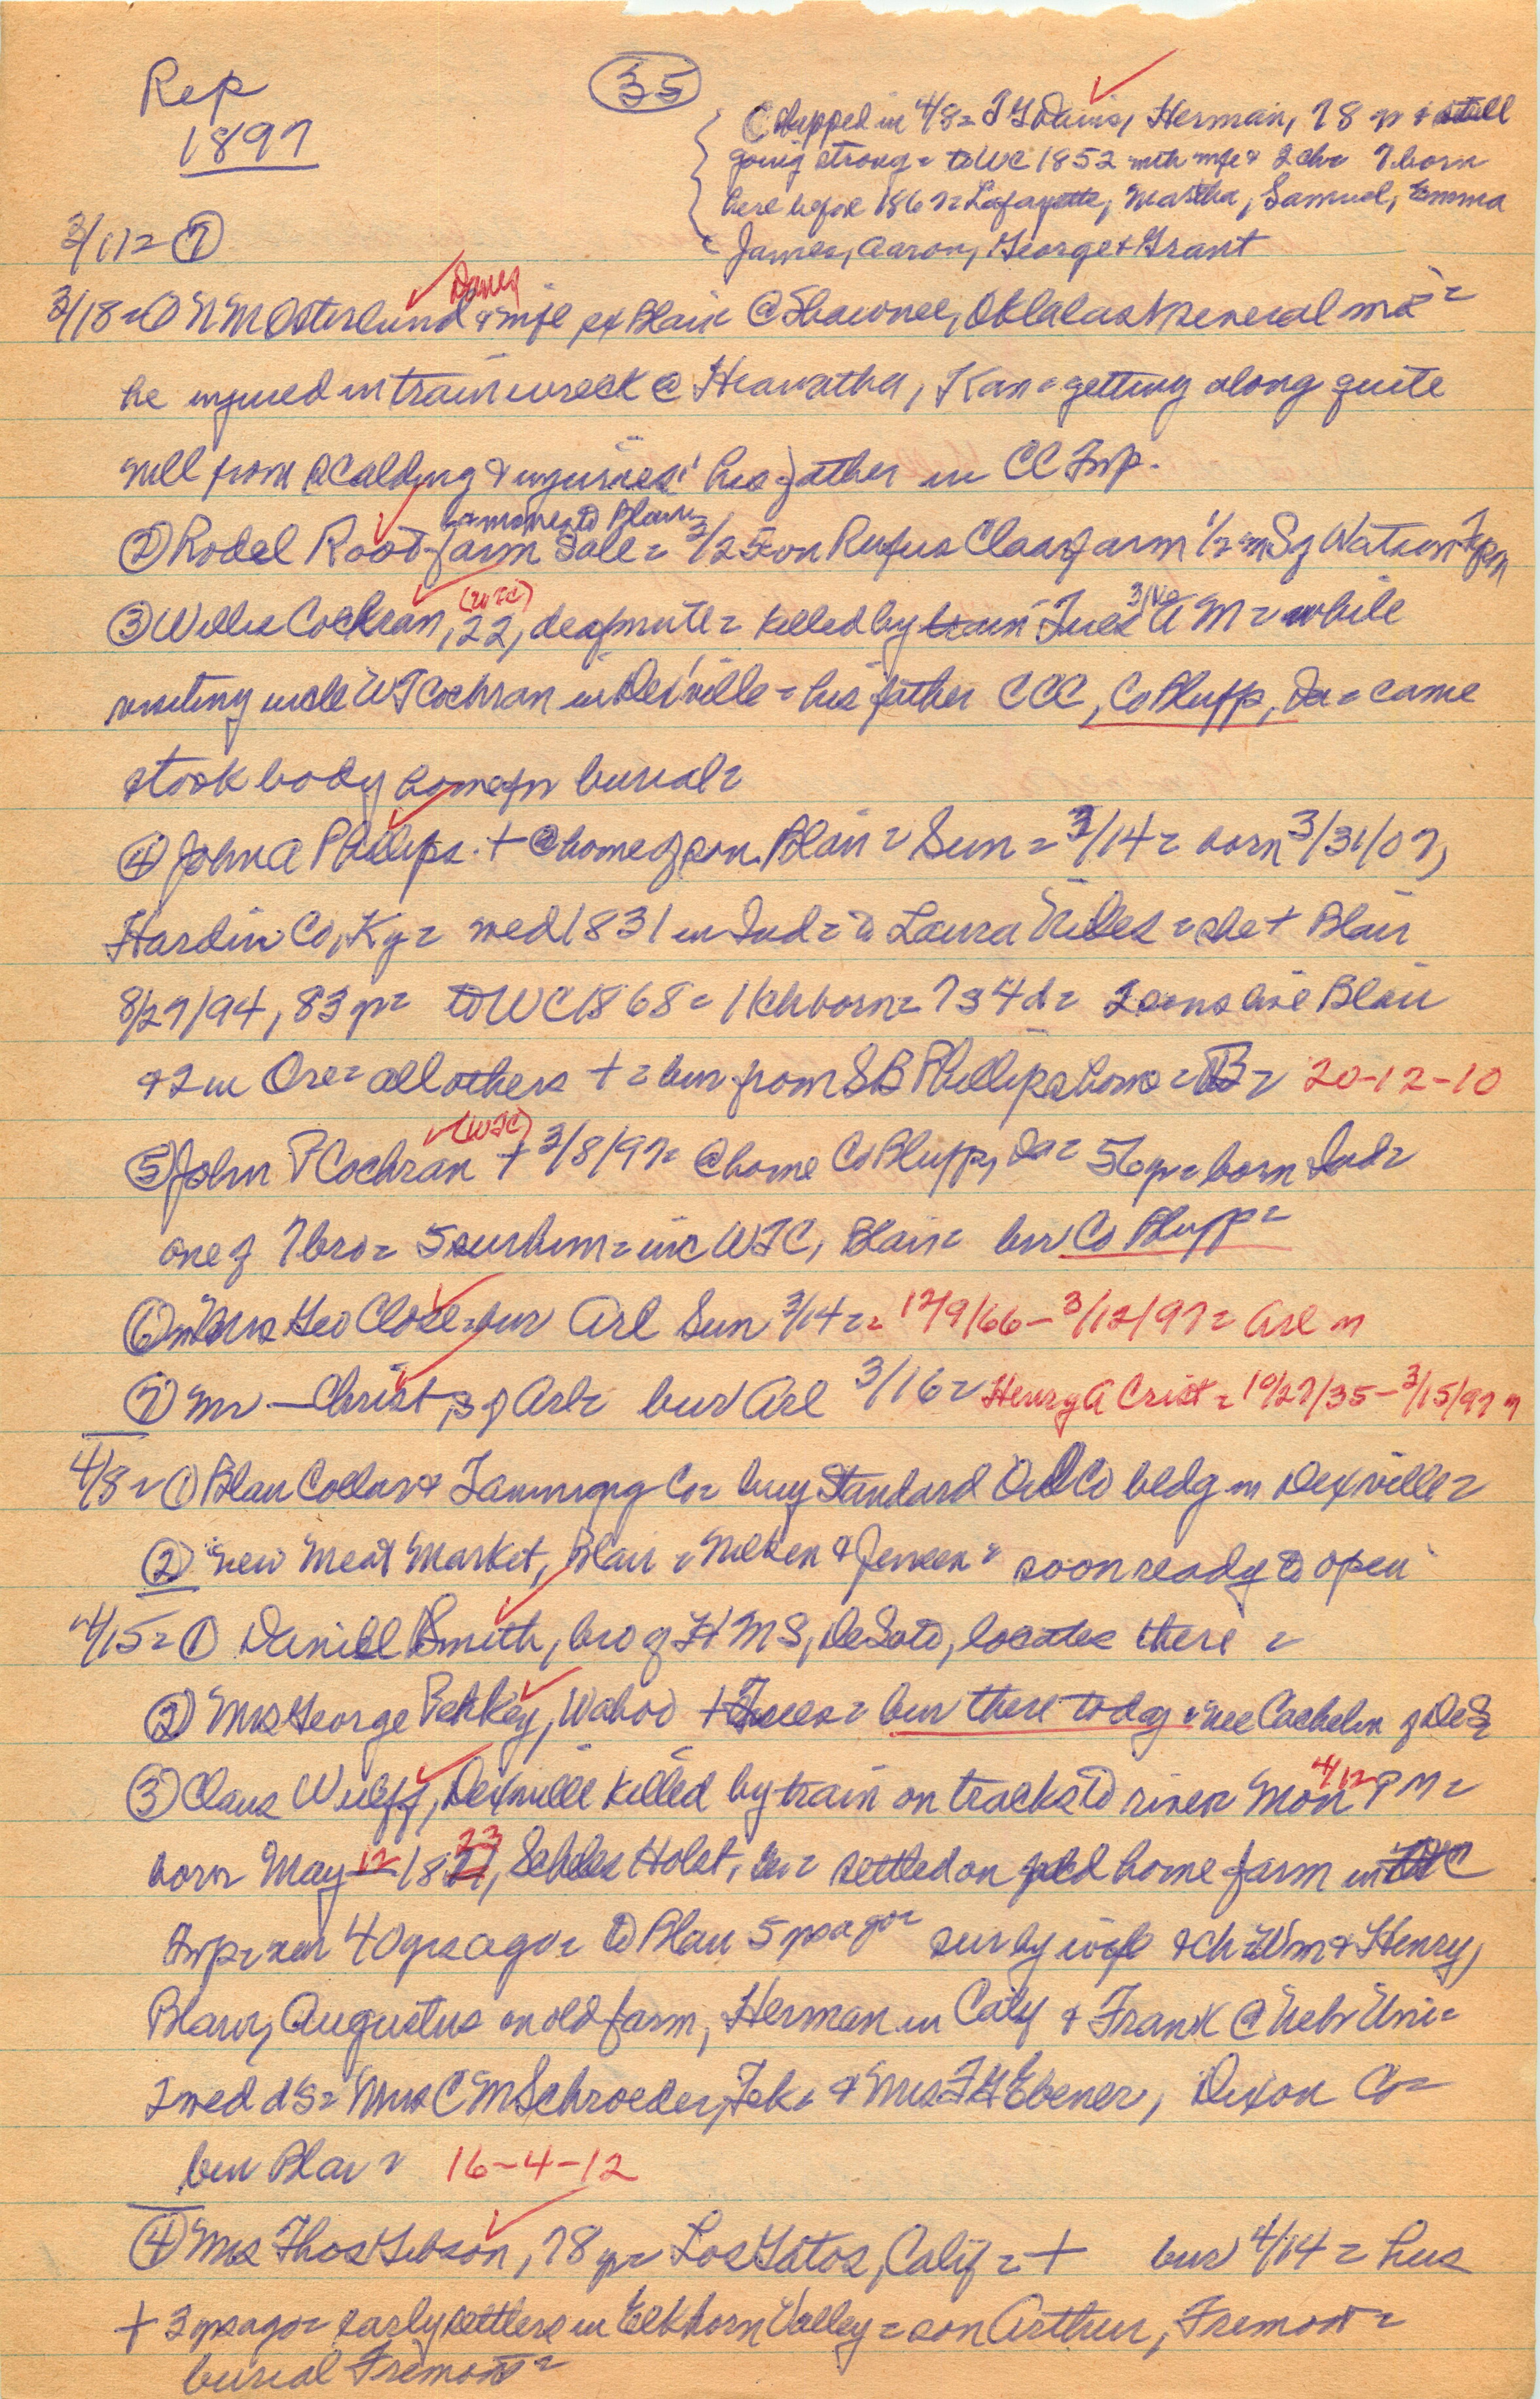 Rep
1897
35
C Skipped in 4/8 = T G Davis, Herman, 78 yr & still
going strong = to WC 1852 with wife & 2 ch = 7 born
here before 1867 = Lafayette, Martha, Samuel, Emma
James, Aaron, George & Grant
3/11 = 7
3/18 = 1 N M Osterlund & wife ex Blair @ Shawnee, Okla last several mo =
he injured in train wreck @ Hiawatha, Kan = getting along quite
well from scalding & injuries' his father in CC Twp.
& moves to Blair
2 Rodel Root farm Sale = 3/25 on Rufus Claar farm 1/2 m S of Watson
(WTC) 3/16
3 Willis Cochran, 22, deafmute = killed by train Tues AM = while
visiting uncle WT Cochran in Dexville = his father CCC, Co Bluffs, Ia = came
& took body home for burial =
4 John A Phillips + @ home of son Blair = Sun = 3/14 = born 3/31/07,
Hardin Co, Ky = wed 1831 in Ind = to Laura = she + Blair
8/27/94, 83 yr = to WC 1868 = 11 ch born = 7 s 4 d = 2 sons live Blair
& 2 in Ore = all others + = bur from SB Phillips home = B = 20-12-10
(WTC)
5 John P Cochran + 3/8/97 = @ home Co Bluffs, Ia = 56 yr = born Ind =
one of 7 bro = 5 surv him = inc WTC, Blair = bur Co Bluffs =
6 Mrs Geo Close = bur Arl Sun 3/14 = = 12/9/66 - 3/12/97 = Arl m
7 Mr — Christ, s of Arl = bur Arl 3/16 = Henry A Crist = 10/27/35 - 3/15/97 m
4/8 = 1 Blair Collar & Tanning Co = buy Standard Oil Co bldg in Dexville =
2 New Meat Market, Blair = Nielsen & Jensen = soon ready to open
4/15 = 1 Daniel Smith, bro of H M S, DeSoto, locates there =
2 Mrs George, Wahoo + Tues = bur there today = nee Cachelin of DeS
4/12
3 Claus Wulff, Dexville killed by train on tracks to river Mon PM =
born May 12 1823, Schles Holst, Ger = settled on good home farm in
Twp near 40 yrs ago = to Blair 5 yrs ago = sur by wife & ch = Wm & Henry,
Blair, Augustus on old farm, Herman in Calif & Frank @ Nebr Uni =
2 wed d's = Mrs C M Schroeder, Tek = & Mrs F G Ebener, Dixon Co =
bur Blair = 16-4-12
4 Mrs Thos Gibson, 78 yr = Los Gatos, Calif = + bur 4/14 = hus
+ 3 yrs ago = early settlers in Elkhorn Valley = son Arthur, Fremont =
burial Fremont =